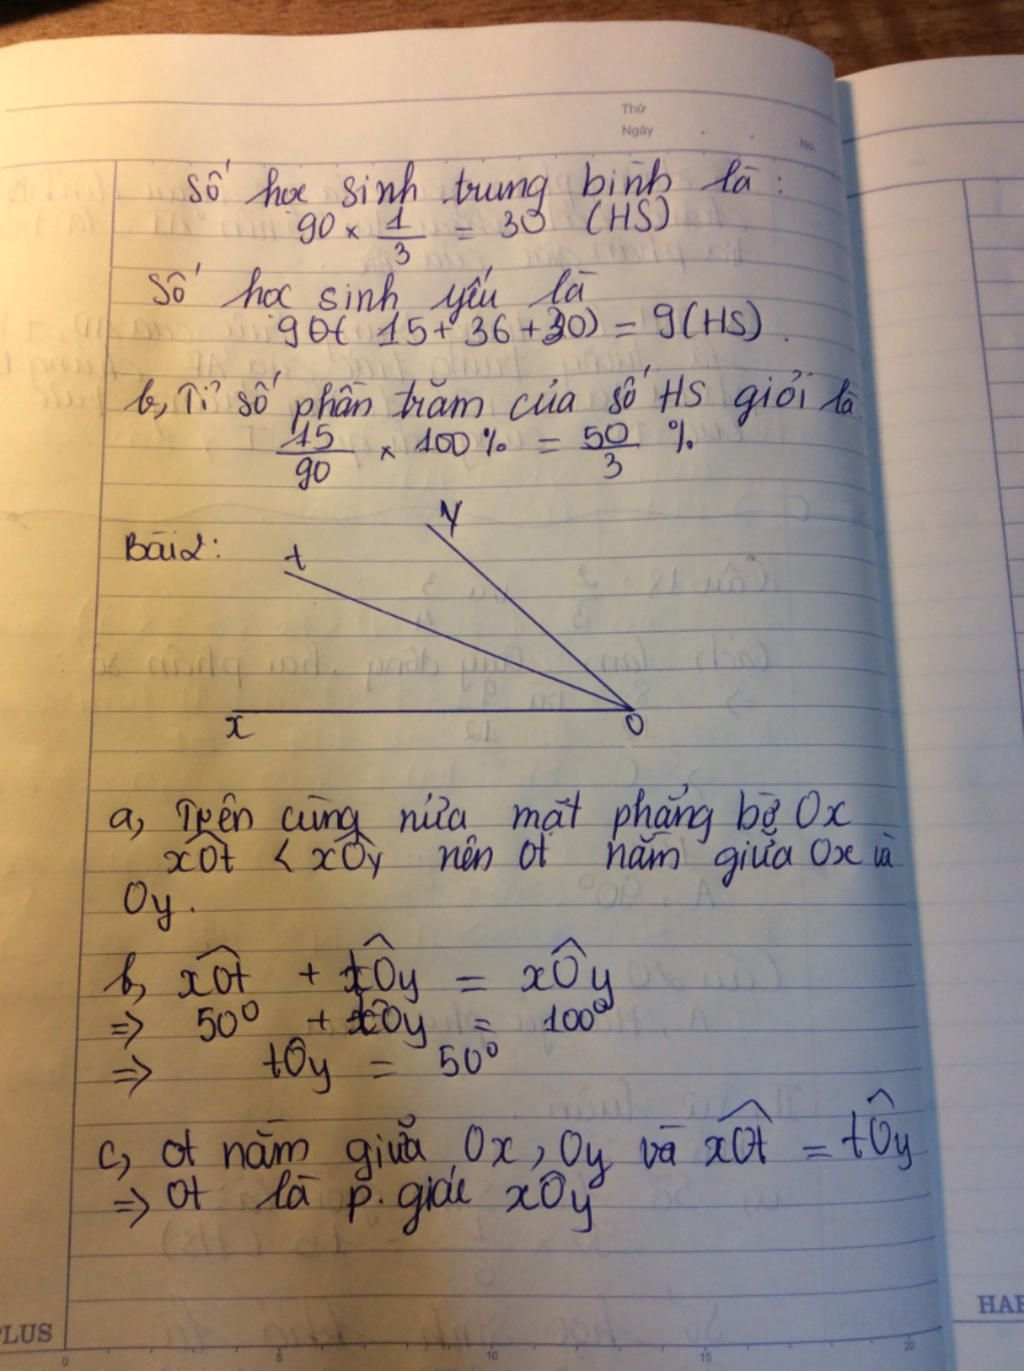 Thứ
Ngày . . No.
Số học sinh trung bình là :
90 × 1/3 = 30 (HS)
Số học sinh yếu là
90-( 15 + 36 + 30) = 9 (HS) .
b, Tỉ số phần trăm của số HS giỏi là
15/90 × 100 % = 50/3 %
Bài 2 :
y
t
x
O
a, Trên cùng nửa mặt phẳng bờ Ox
xOt < xOy nên Ot nằm giữa Ox và
Oy .
b, xOt + tOy = xOy
=> 50° + tOy = 100°
=> tOy = 50°
c, Ot nằm giữa Ox , Oy và xOt = tOy
=> Ot là p. giác xOy
PLUS
0 5 10 15 20
HAP